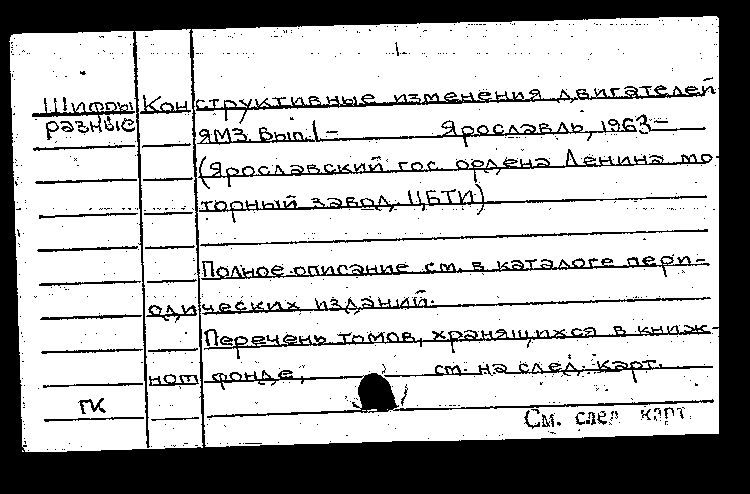 1
Шифры Конструктивные изменения двигателей
разные
ЯМЗ. Вып. 1- Ярославль, 1963-
(Ярославский гос. ордена Ленина мо-
торный завод. ЦБТИ)
Полное описание см. в каталоге пери-
одических изданий.
Перечень томов, хранящихся в книж-
ном фонде, см. на след. карт.
ГК
См. след карт.